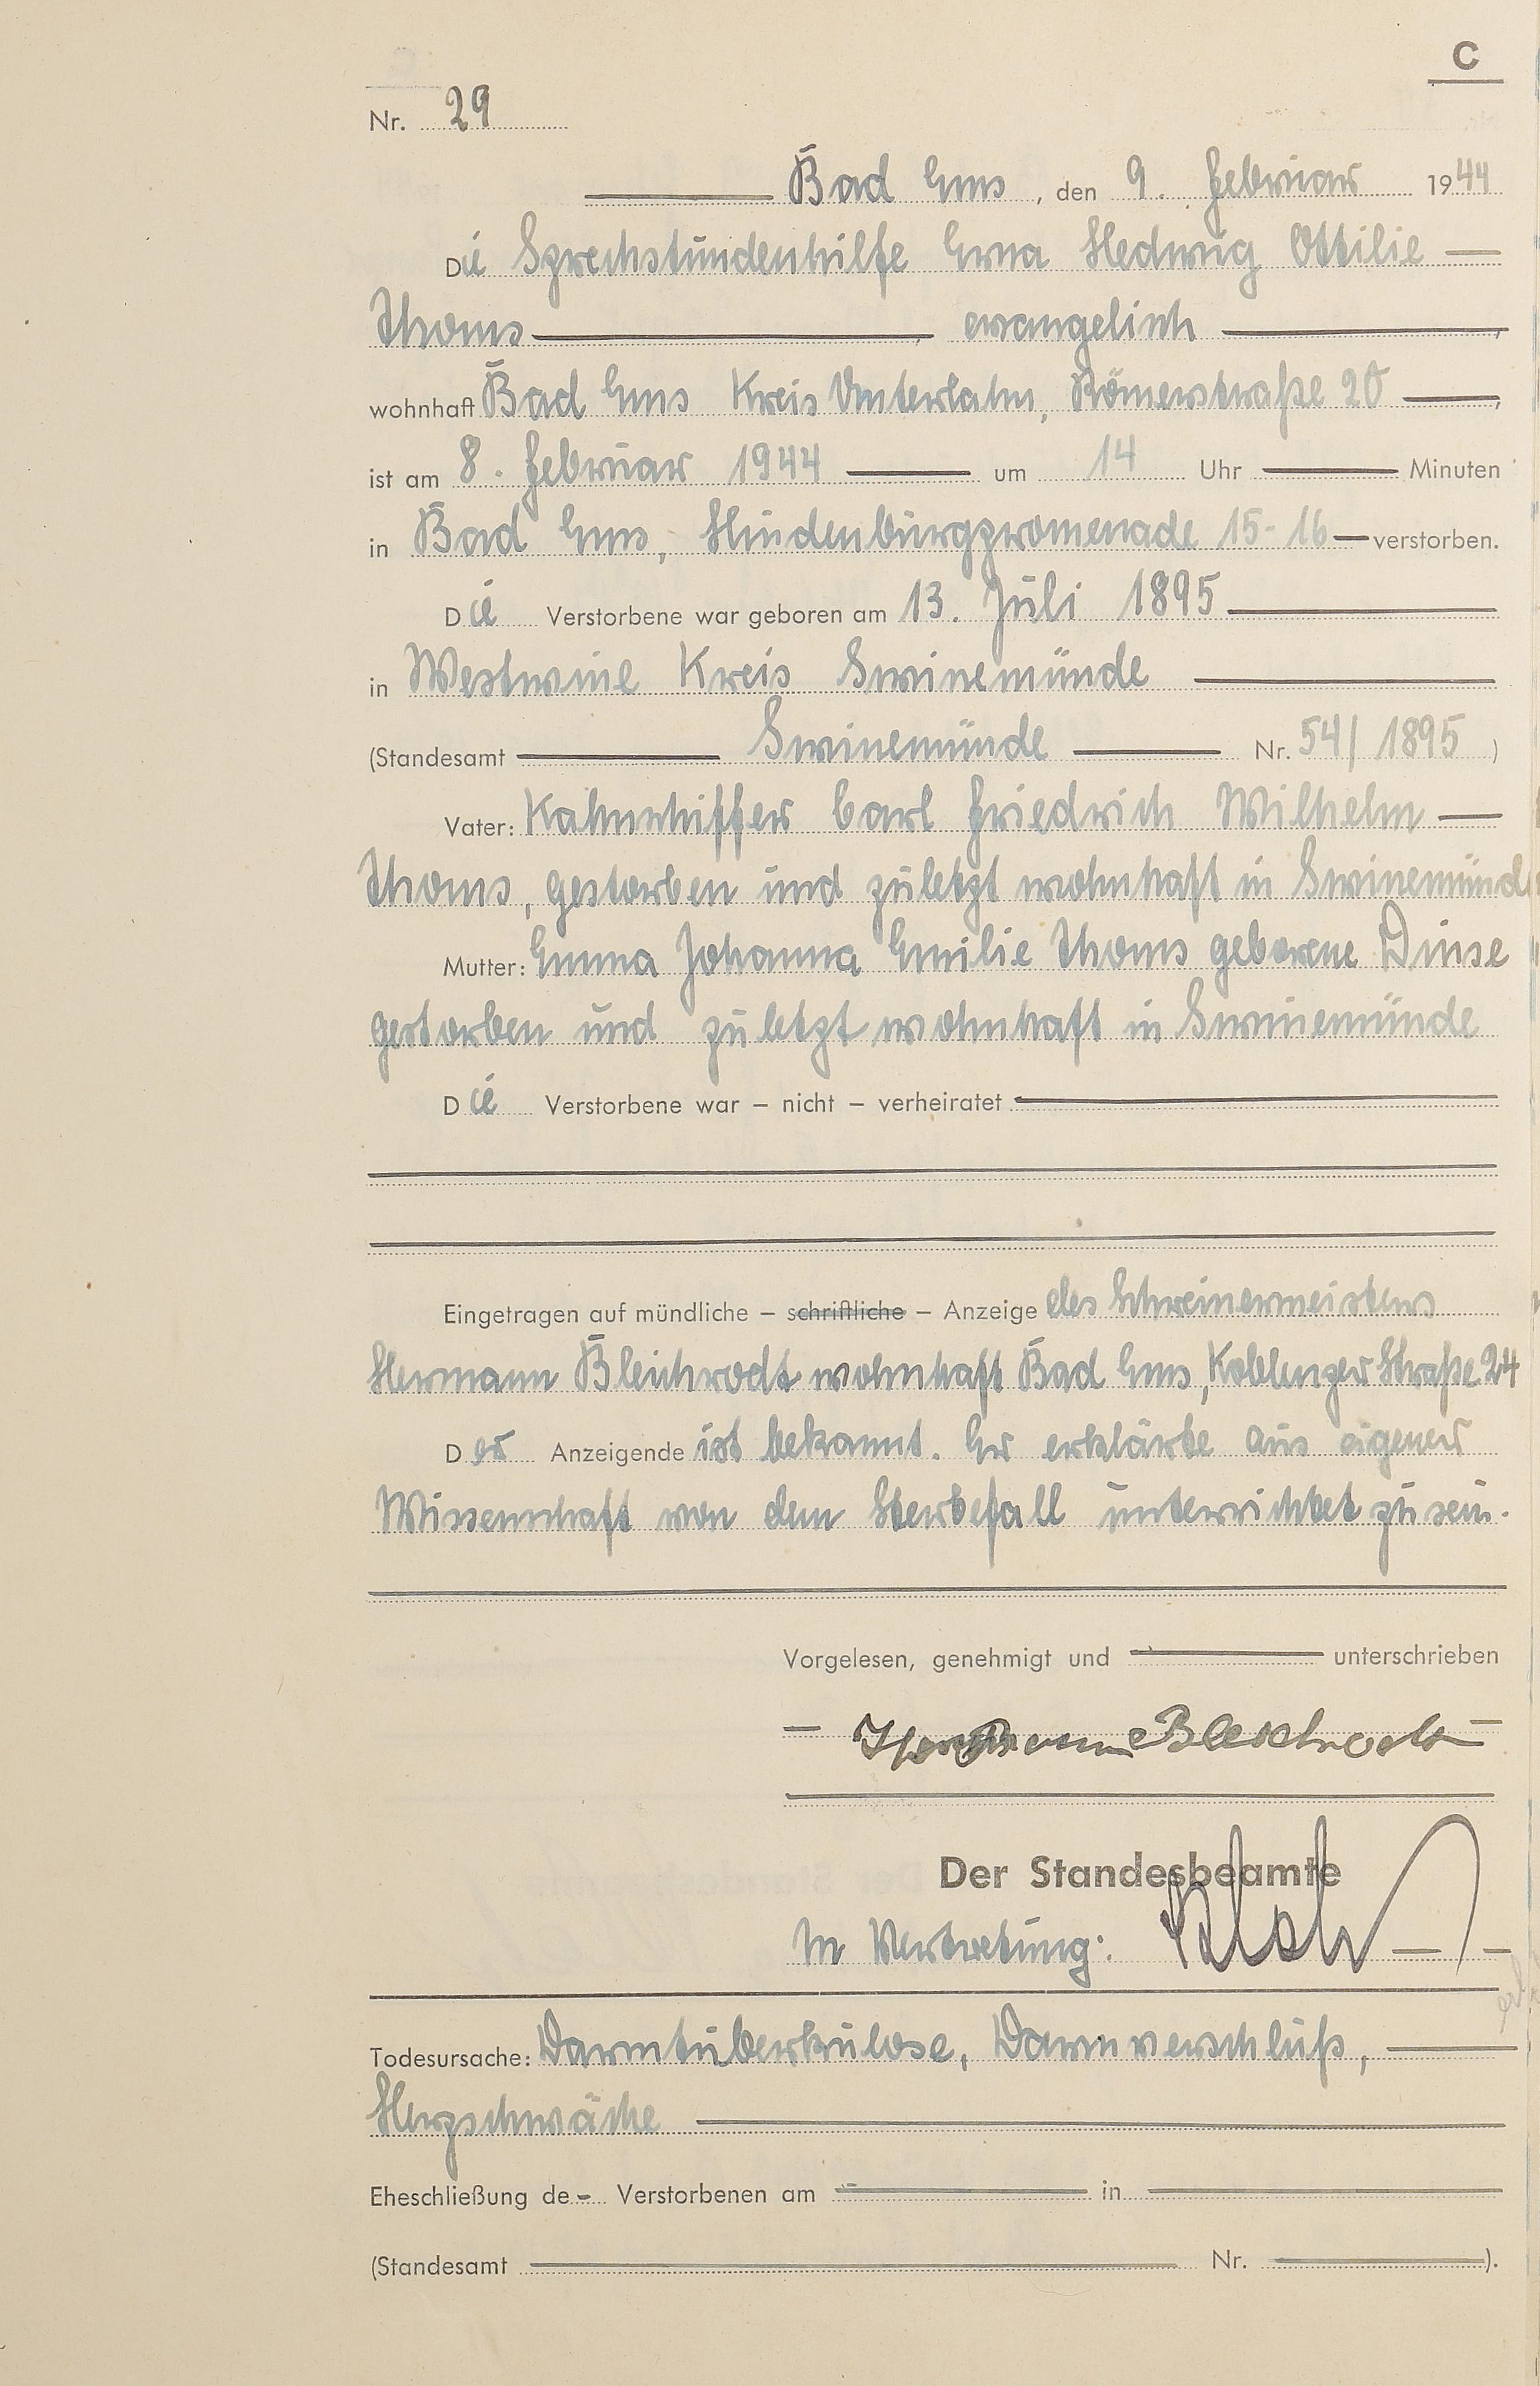 C
Nr. 29
Bad Ems, den 9. Februar 1944
Die Sprechstundenhilfe Erna Hedwig Ottilie
Thoms, evangelisch,
wohnhaft Bad Ems Kreis Unterlahn, Römerstraße 20,
ist am 8. Februar 1944 um 14 Uhr Minuten
in Bad Ems, Hindenburgpromenade 15-16 verstorben.
Die Verstorbene war geboren am 13. Juli 1895
in Westswine Kreis Swinemünde
(Standesamt Swinemünde Nr. 54/1895)
Vater: Kahnschiffer Carl Friedrich Wilhelm
Thoms, gestorben und zuletzt wohnhaft in Swinemünde
Mutter: Emma Johanna Emilie Thoms geborene Dinse
gestorben und zuletzt wohnhaft in Swinemünde
Die Verstorbene war – nicht – verheiratet
Eingetragen auf mündliche – schriftliche – Anzeige des Schreinermeisters
Hermann Bleichrodt wohnhaft Bad Ems, Koblenzer Straße 24
Der Anzeigende ist bekannt. Er erklärte aus eigener
Wissenschaft von dem Sterbefall unterrichtet zu sein.
Vorgelesen, genehmigt und unterschrieben
Hermann Bleichrodt
Der Standesbeamte
In Vertretung:
Todesursache: Darmtuberkulose, Darmverschluß,
Herzschwäche
Eheschließung de - Verstorbenen am in
(Standesamt Nr. ).